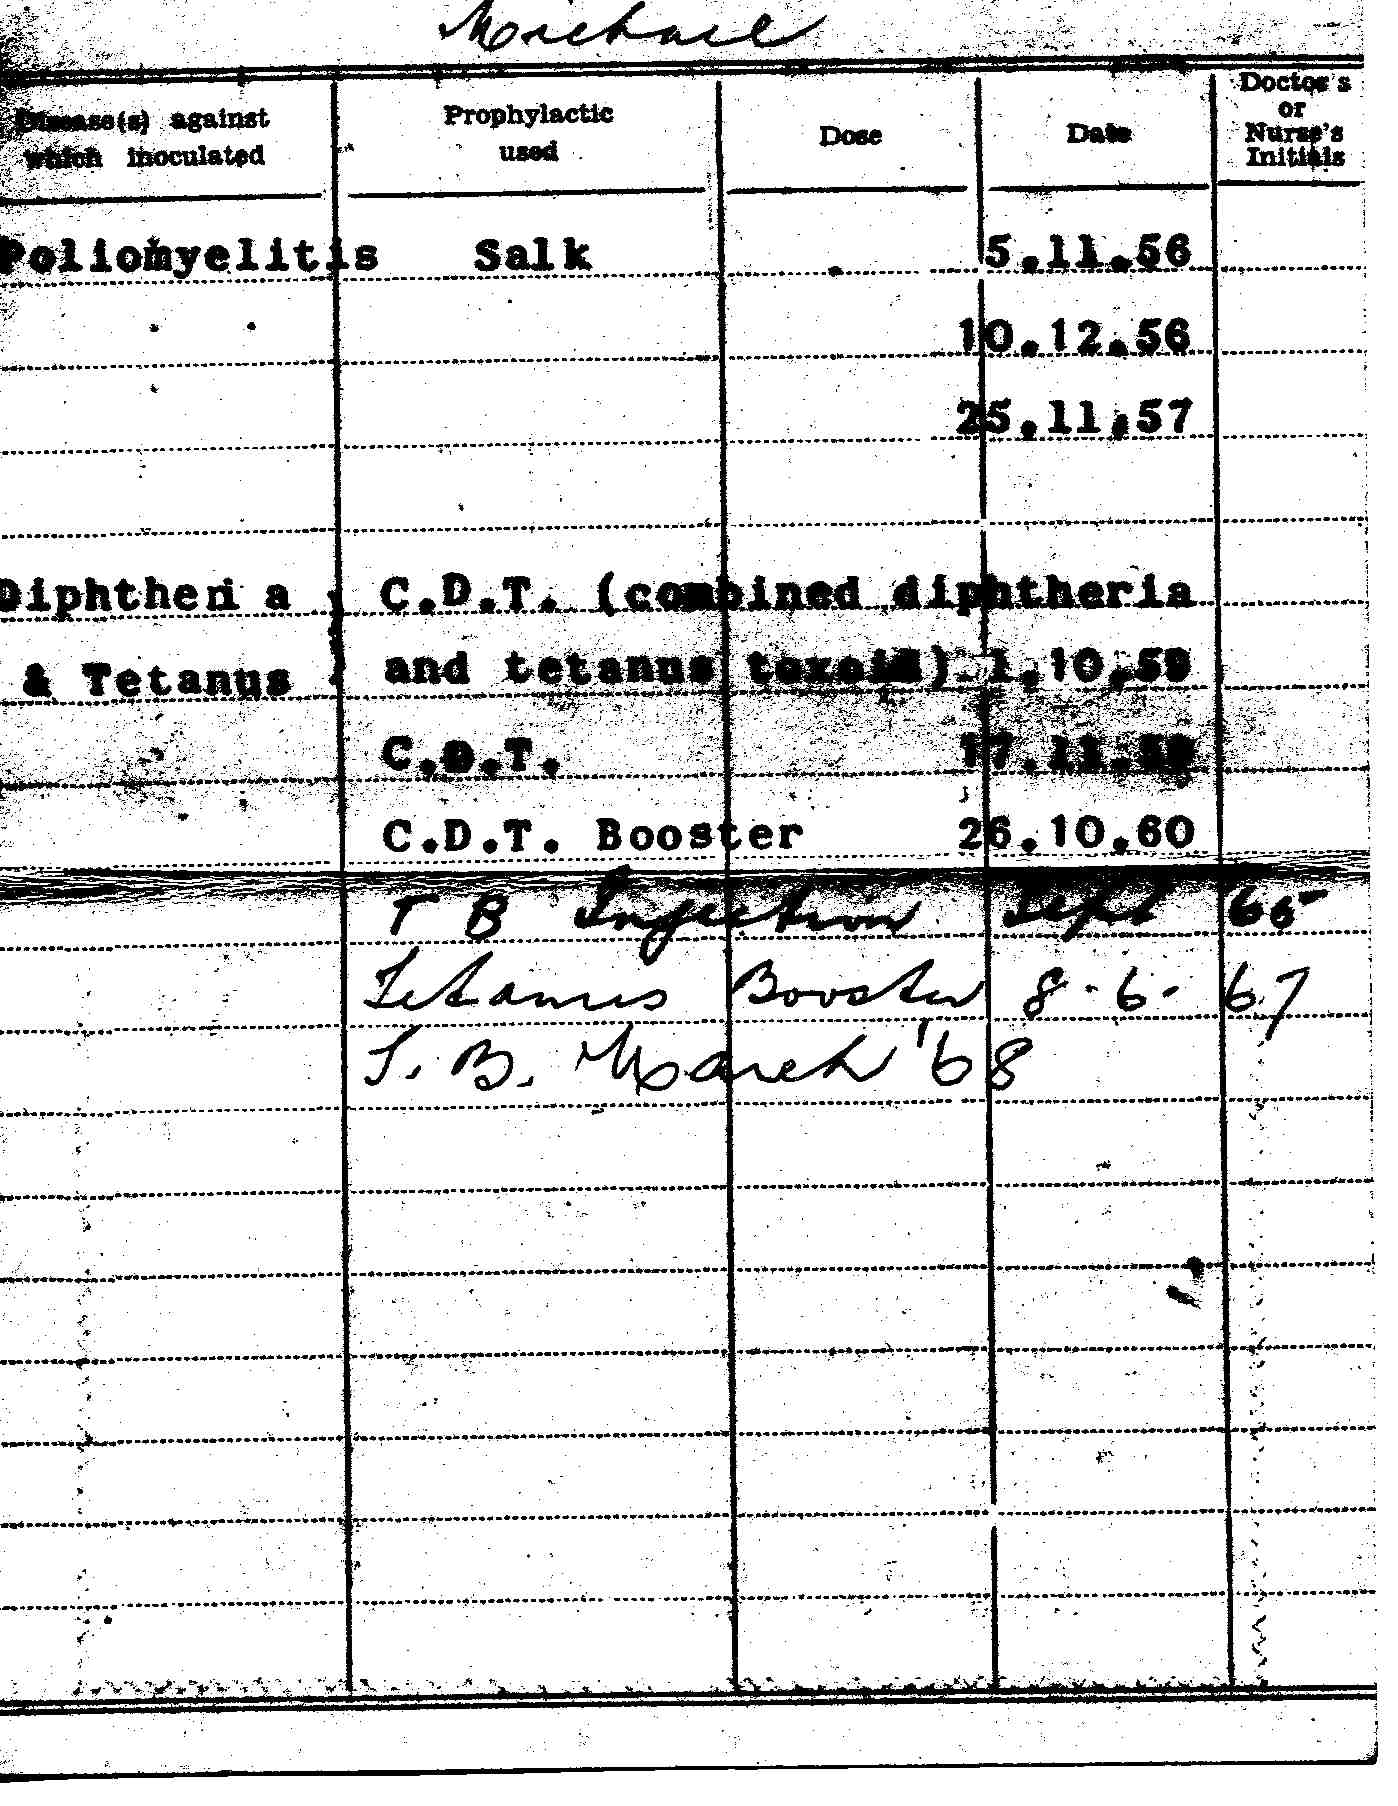 Michael
Disease(s) against which inoculated
Prophylactic used
Dose
Date
Doctor's or Nurse's Initials
Poliomyelitis Salk 5.11.56
10.12.56
25.11.57
Diphtheri a C.D.T. (combined diphtheria
& Tetanus and tetanus toxoid) 1.10.59
C.D.T. 17.11.59
C.D.T. Booster 26.10.60
T B Injection Sept 65
Tetanus Booster 8.6.67
T.B. March '68